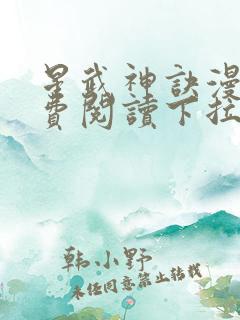 星武神訣漫
費閱讀下拉
韩小野
未经同意禁止转载